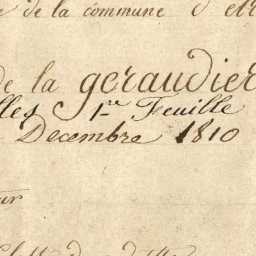 de la commune d'
de la geraudier
lles 1re Feuille
Decembre 1810
eur